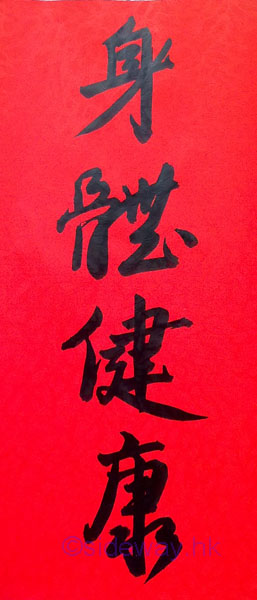 身體健康
©sideway.hk